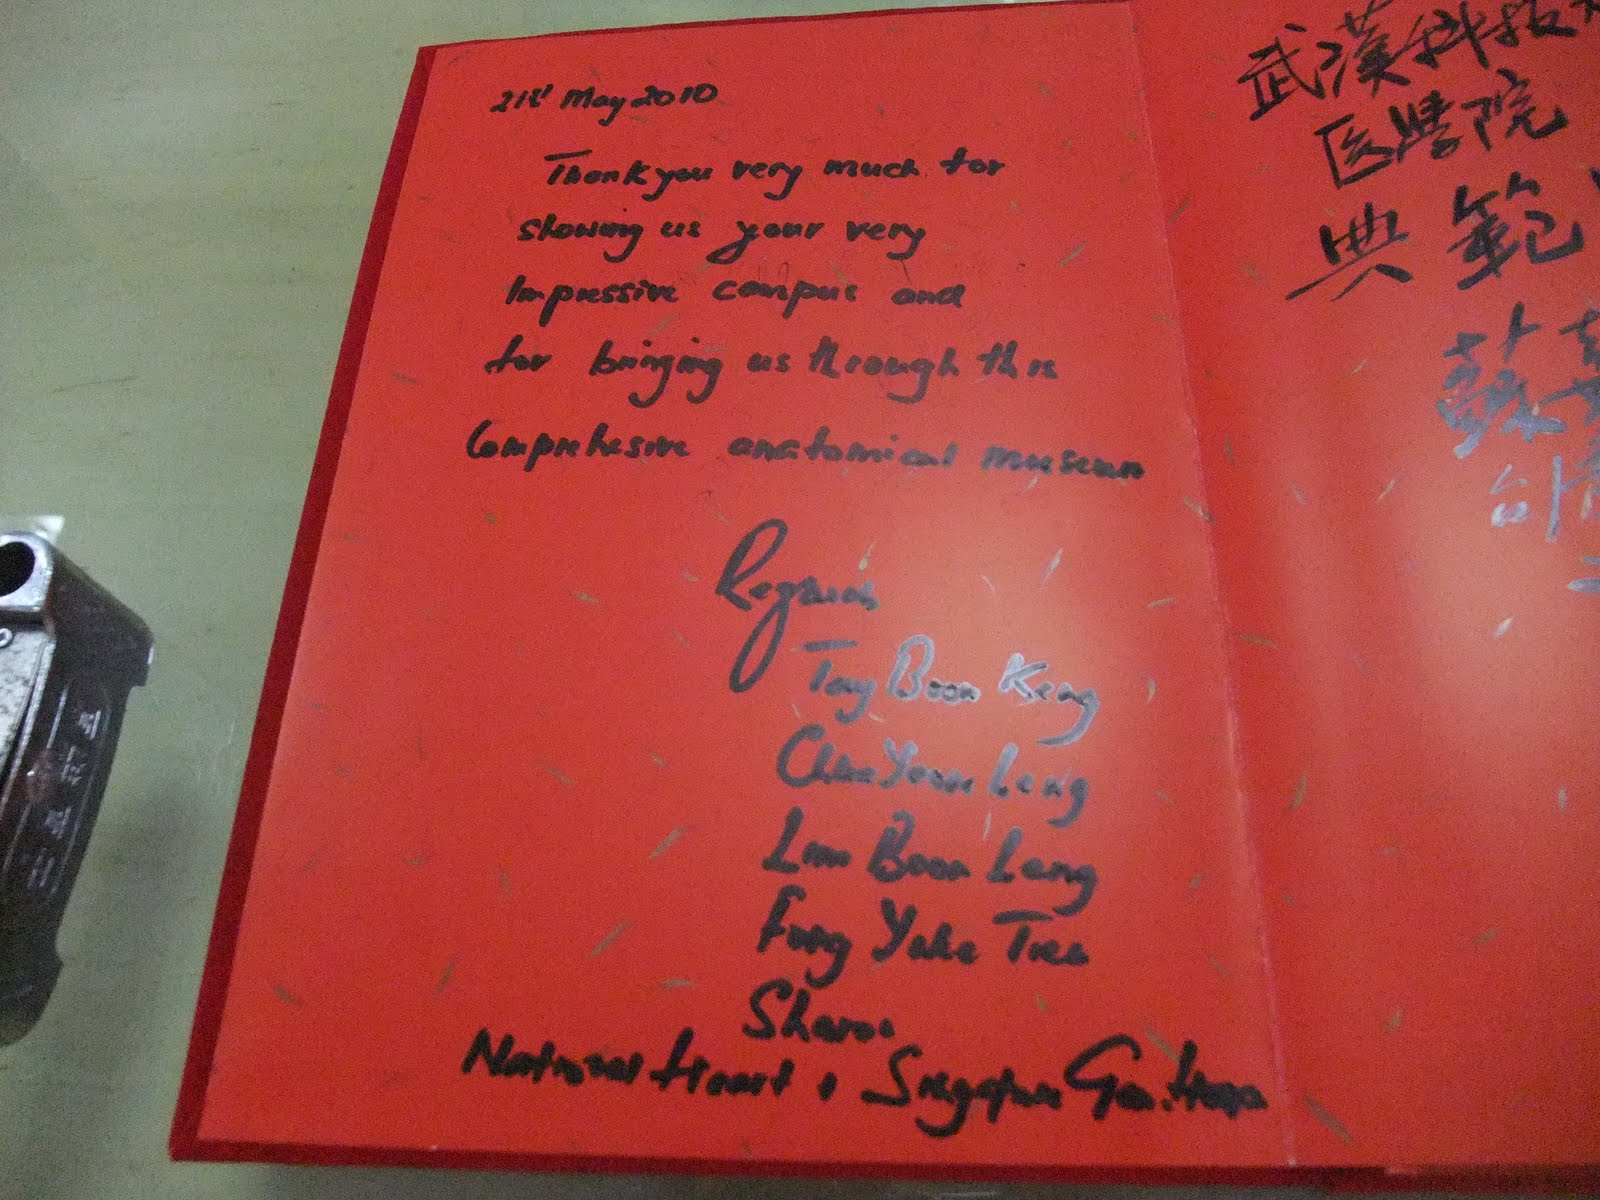 21st May 2010
Thank you very much for
showing us your very
Impressive campus and
for bringing us through this
Comprehesive anatomical museum
Regards
Tay Boon Keng
Chua Yeow Leng
Lim Boon Leng
Fong Yoke Tien
Sharon
National Heart + Singapore Gen. Hosp
武漢科技
医學院
典範
蘇
台